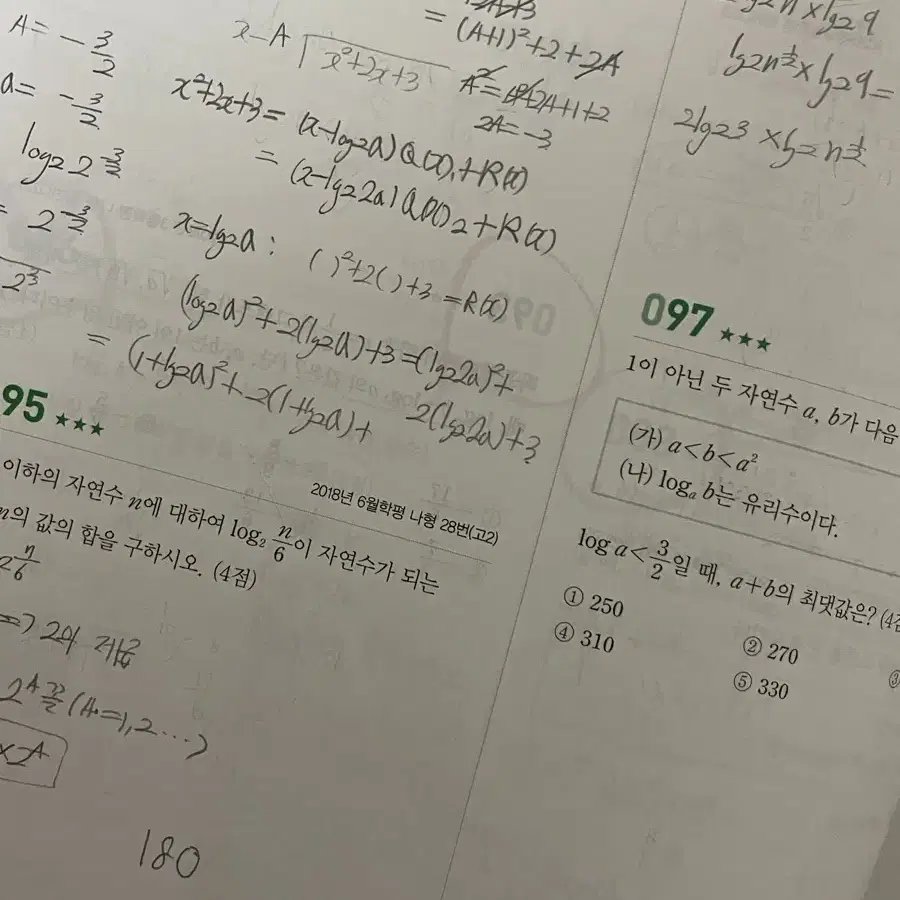 A = -3/2
a = -3/2
log2 2^-3/2
2^-3/2
x-A
x²+2x+3
= (A+1)²+2+2A
A² = A²+2A+1+2
2A = -3
x²+2x+3 = (x-log2a)Q(x)1+R(x)
= (x-log2 2a)Q(x)2+R(x)
x=log2a : ( )²+2( )+3 = R(x)
(log2a)²+2(log2a)+3 = (log2 2a)²+
2(log2 2a)+3
= (1+log2a)²+2(1+log2a)+
95 ★★★
2018년 6월학평 나형 28번(고2)
이하의 자연수 n에 대하여 log₂ n/6이 자연수가 되는
n의 값의 합을 구하시오. (4점)
2 n/6
=> 2의 제곱
2^A 꼴 (A=1, 2 ...)
×2^A
180
log2 9
lg2n^1/2 × lg2 9 =
2lg2 3 × lg2 n^1/2
097 ★★★
1이 아닌 두 자연수 a, b가 다음
(가) a<b<a²
(나) logₐ b는 유리수이다.
log a < 3/2일 때, a+b의 최댓값은? (4점
① 250
② 270
③
④ 310
⑤ 330